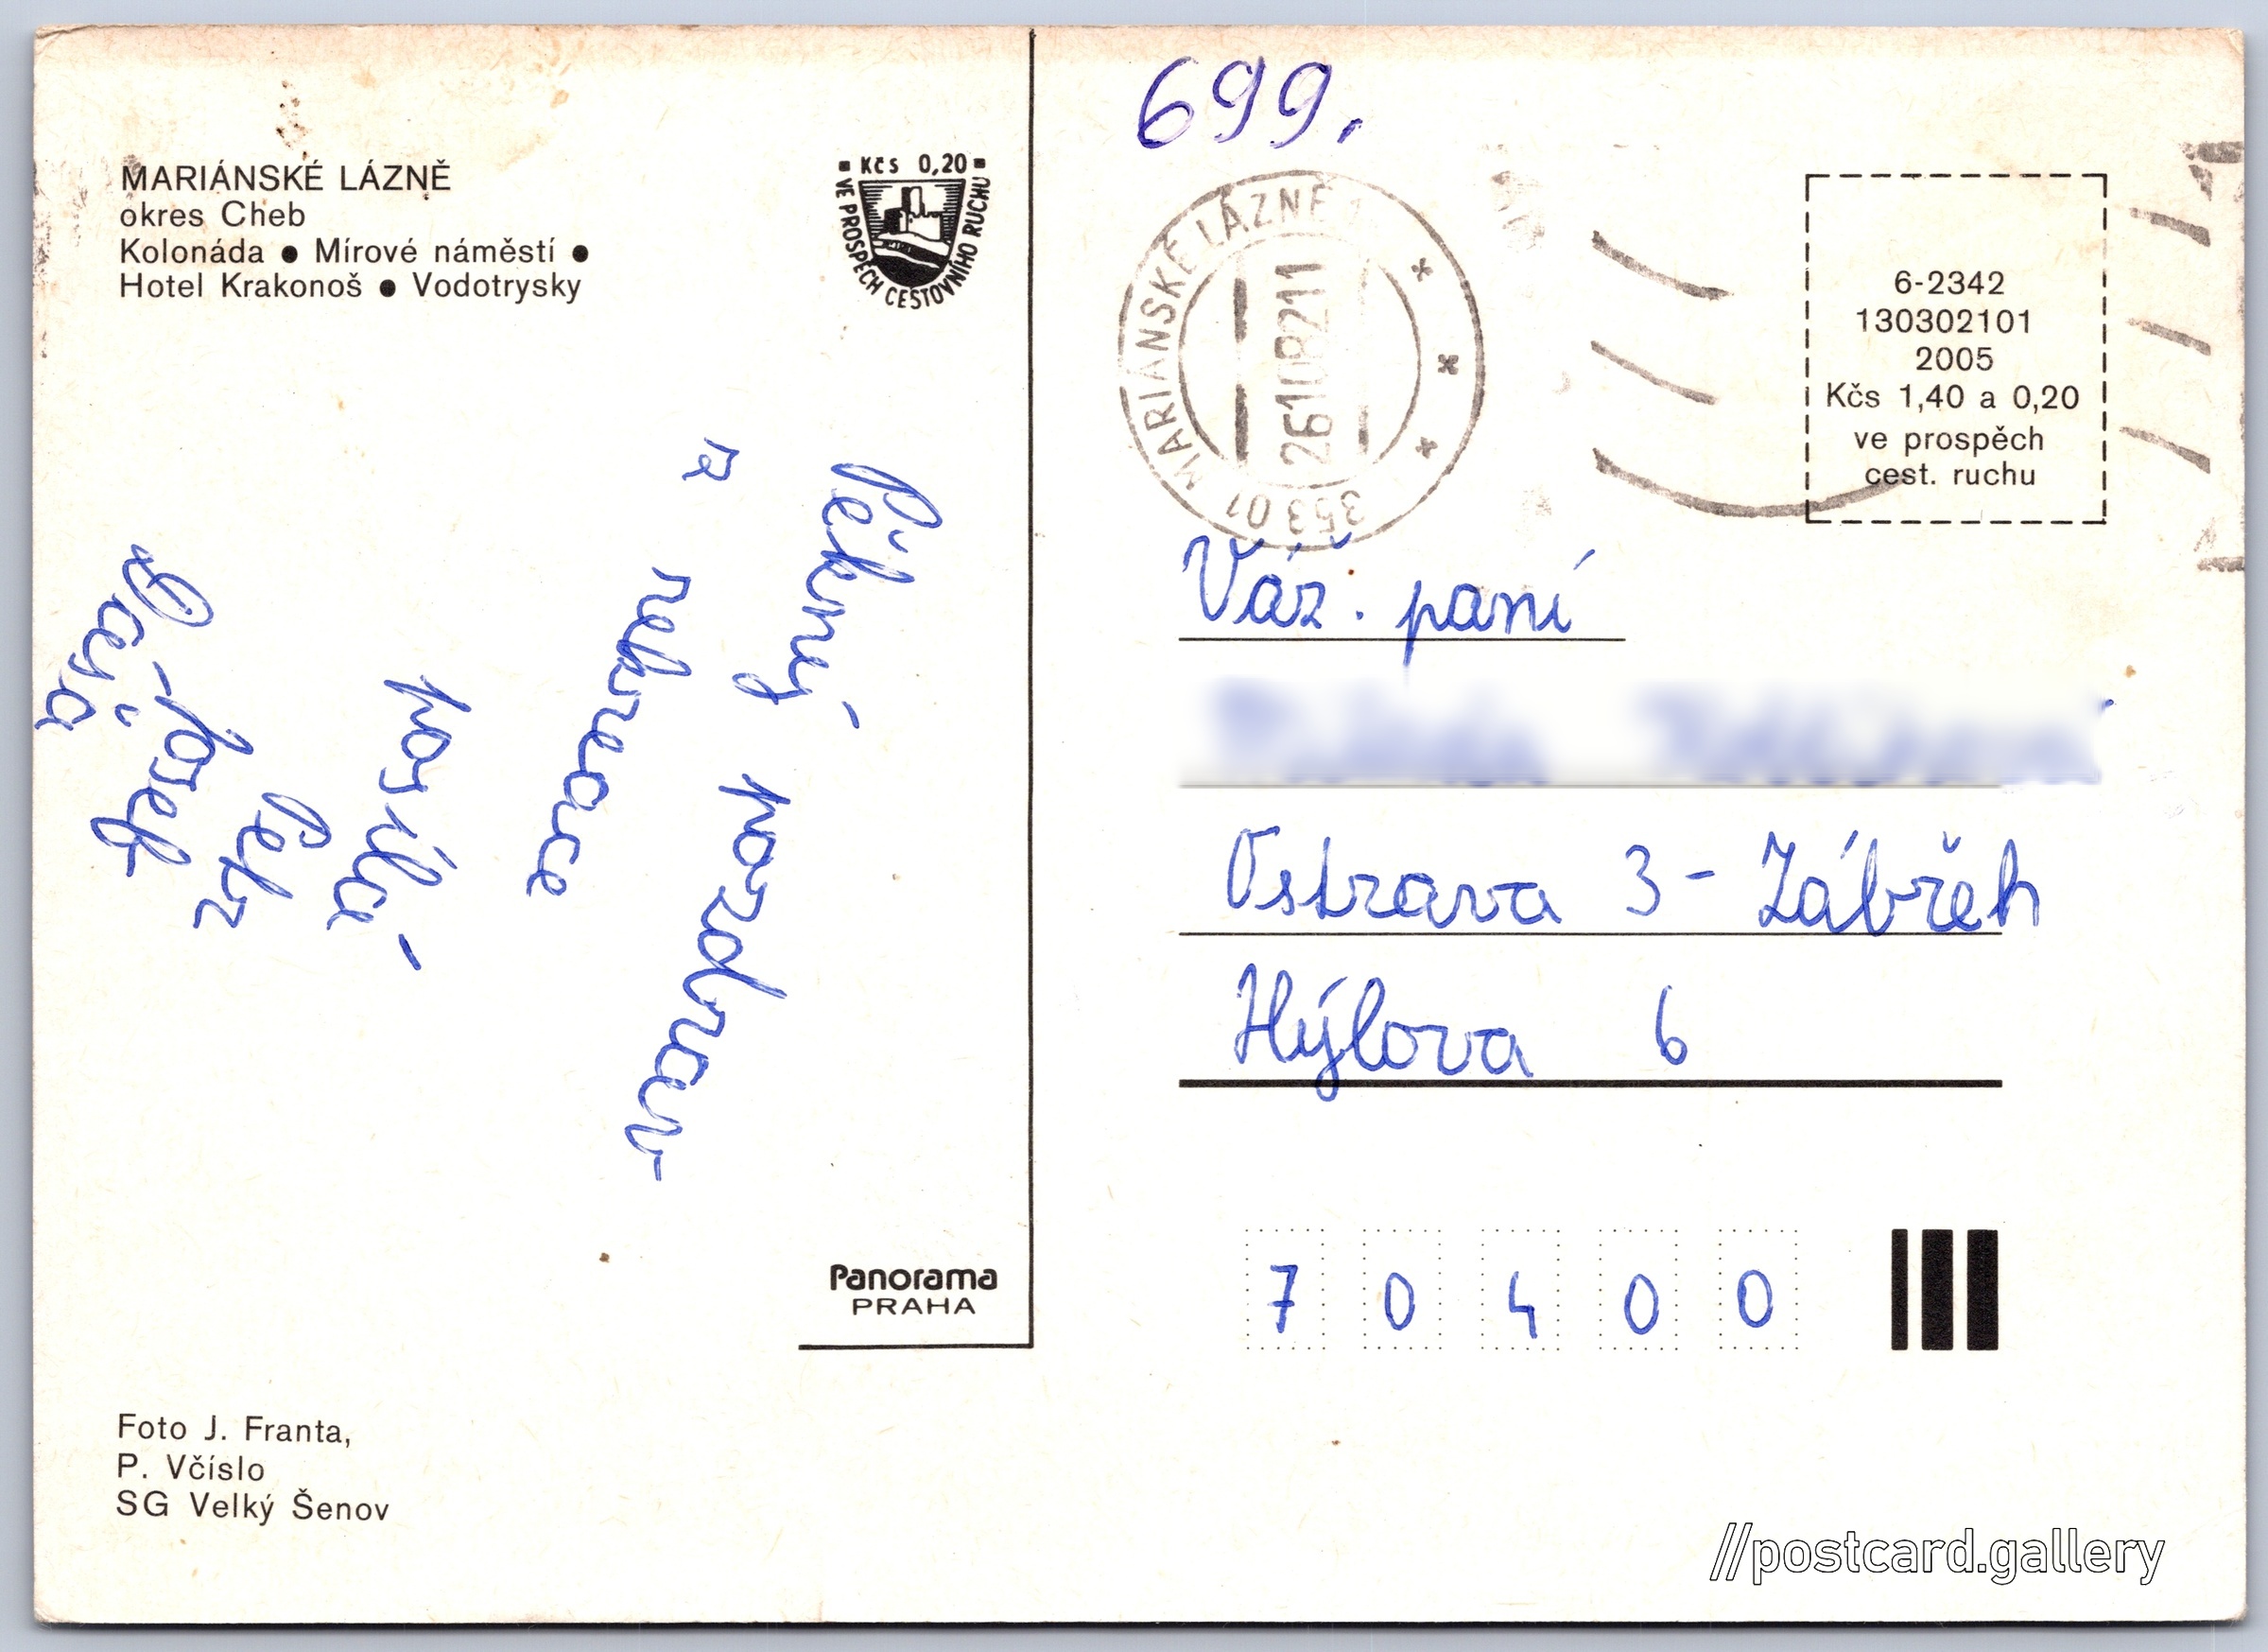 MARIÁNSKÉ LÁZNĚ
okres Cheb
Kolonáda ● Mírové náměstí ●
Hotel Krakonoš ● Vodotrysky
▪ Kčs 0,20 ▪
VE PROSPĚCH CESTOVNÍHO RUCHU
Pěkný pozdrav
z rekreace
posílá
Petr
Josef
Dáša
Panorama
PRAHA
Foto J. Franta,
P. Včíslo
SG Velký Šenov
699.
353 01 MARIÁNSKÉ LÁZNĚ 1
26108211
6-2342
130302101
2005
Kčs 1,40 a 0,20
ve prospěch
cest. ruchu
Váž. paní
Ostrava 3 - Zábřeh
Hýlova 6
7 0 4 0 0
//postcard.gallery